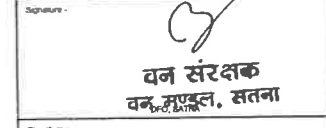 Signature -
वन संरक्षक
वन मण्डल, सतना
DFO, SATNA